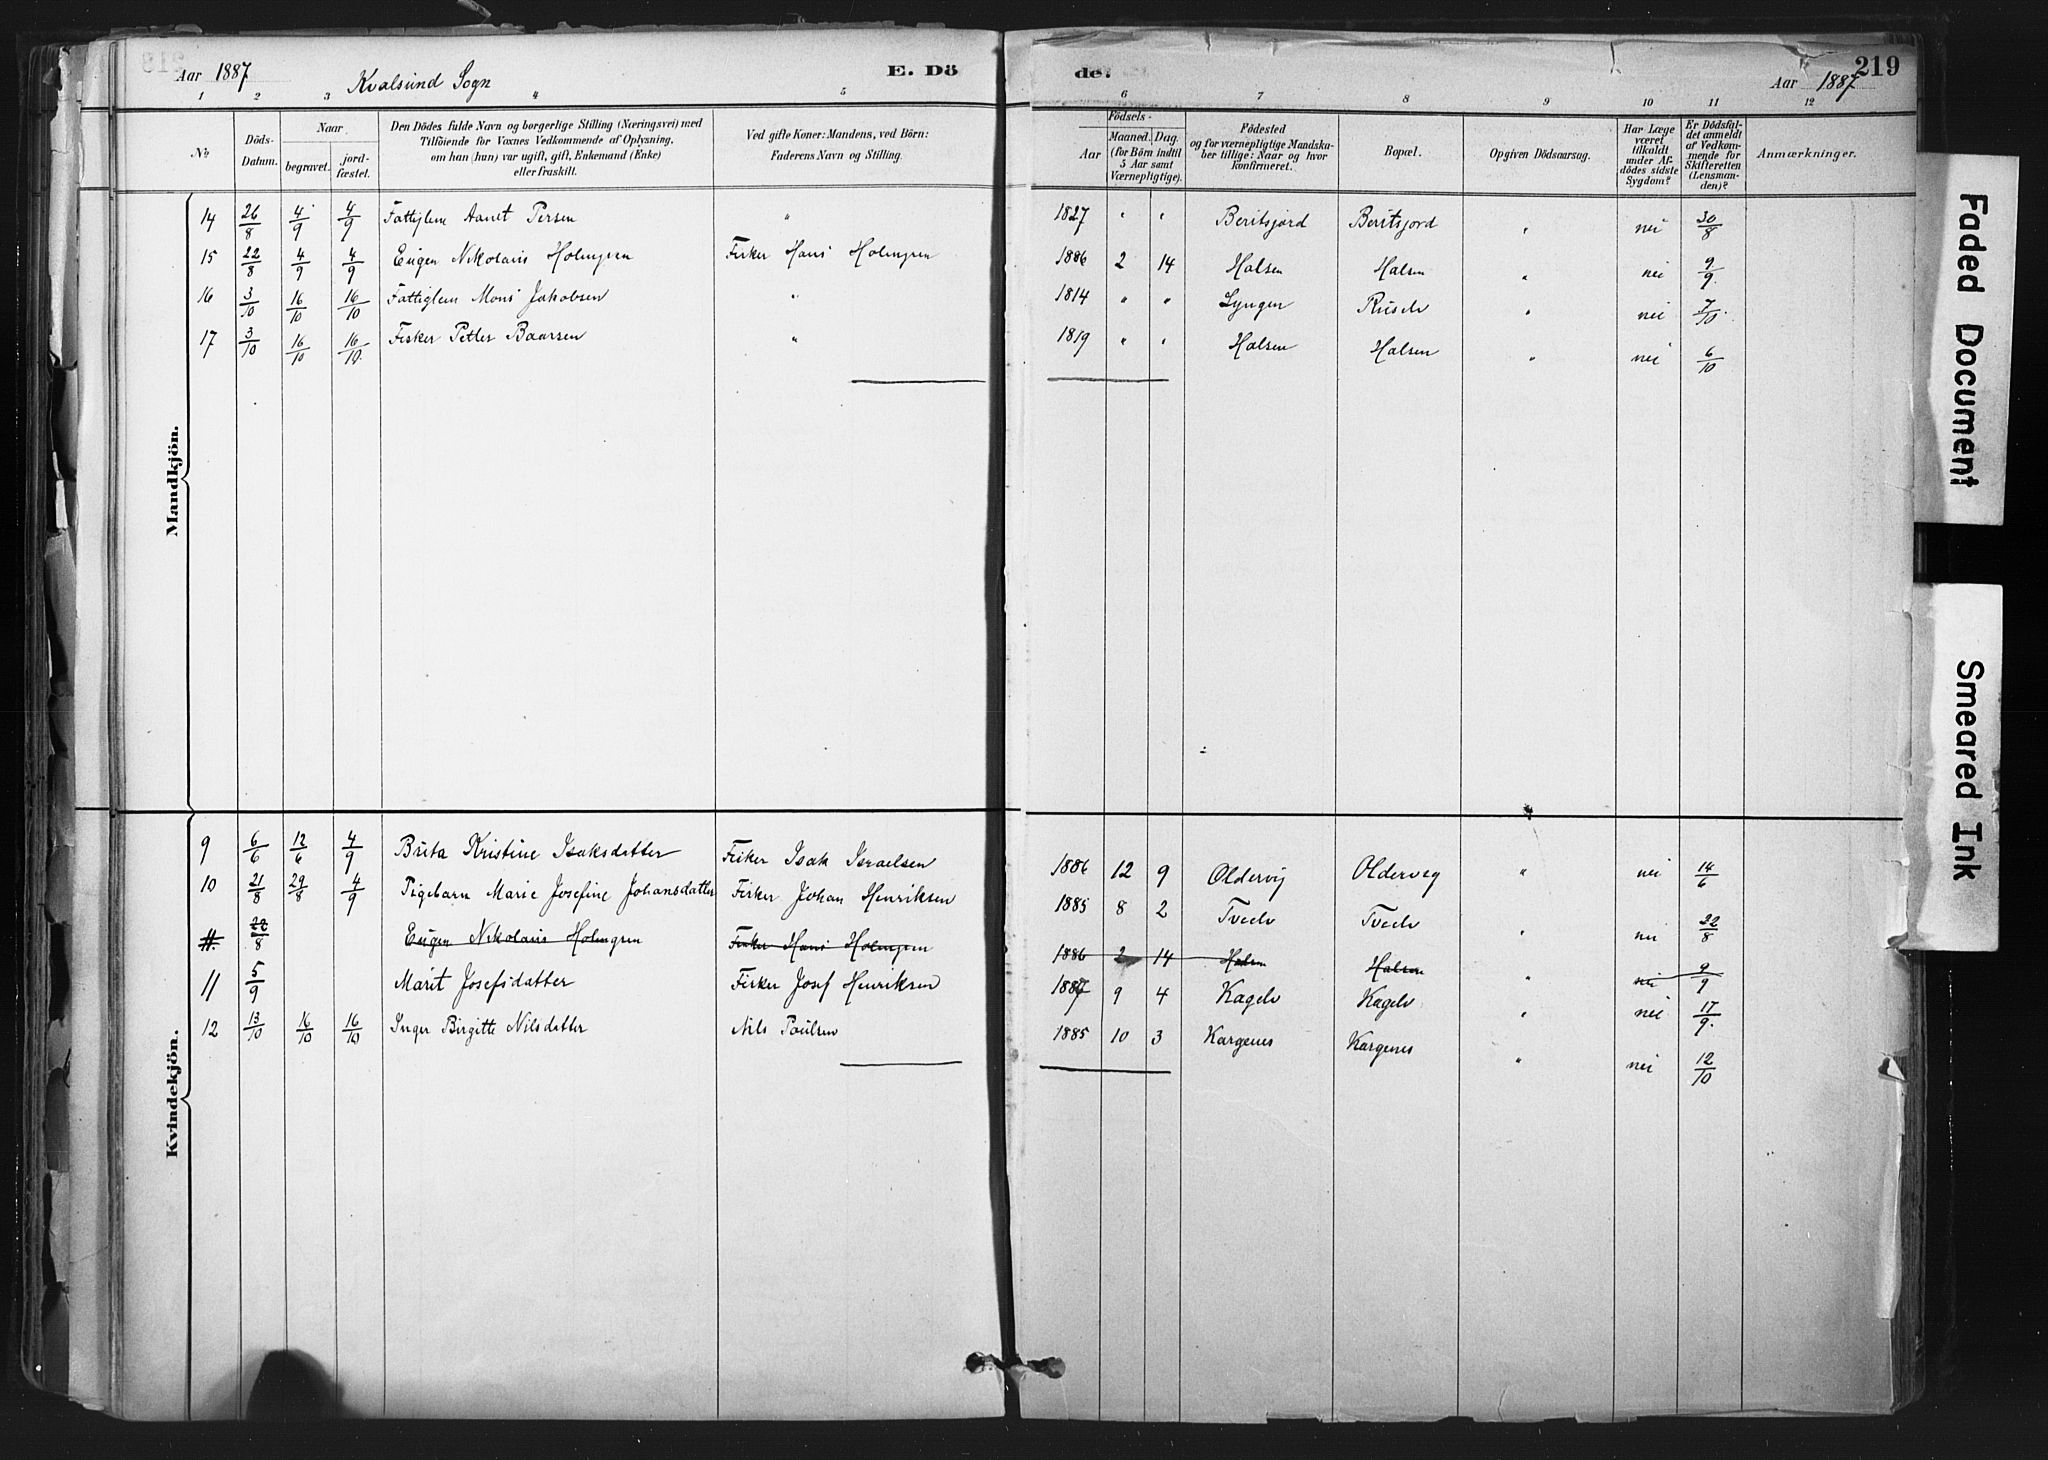 Aar 1887
Kvalsund Sogn
E. Dö
de.
Aar 1887
219
1 2 3 4 5 6 7 8 9 10 11 12
No
Döds-Datum.
Naar
begravet.
jord-fæstet.
Den Dödes fulde Navn og borgerlige Stilling (Næringsvei) med
Tilföiende for Voxnes Vedkommende af Oplysning,
om han (hun) var ugift, gift, Enkemand (Enke)
eller fraskilt.
Ved gifte Koner: Mandens, ved Börn:
Faderens Navn og Stilling.
Födsels-
Aar
Maaned. Dag.
(for Börn indtil
5 Aar samt
Værnepligtige).
Födested
og for værnepligtige Mandska-
ber tillige: Naar og hvor
konfirmeret.
Bopæl.
Opgiven Dödsaarsag.
Har Læge
været
tilkaldt
under Af-
dödes sidste
Sygdom?
Er Dödsfal-
det anmeldt
af Vedkom-
mende for
Skifteretten
(Lensman-
den)?
Anmærkninger.
Mandkjön.
14 26/8 4/9 4/9 Fattiglem Aanet Persen " 1827 " " Beritsjord Beritsjord " nei 30/8
15 22/8 4/9 4/9 Eugen Nikolaus Holmgren Fisker Hans Holmgren 1886 2 14 Halsen Halsen " nei 9/9
16 3/10 16/10 16/10 Fattiglem Mons Jakobsen " 1814 " " Lyngen Ruselv " nei 7/10
17 3/10 16/10 16/10 Fisker Petter Baarsen " 1819 " " Halsen Halsen " nei 6/10
Kvindekjön.
9 6/6 12/6 4/9 Brita Kristine Isaksdatter Fisker Isak Israelsen 1886 12 9 Oldervig Oldervig " nei 14/6
10 21/8 29/8 4/9 Pigebarn Marie Josefine Johansdatter Fisker Johan Henriksen 1885 8 2 Tvedv Tvedv " nei 22/8
11. 22/8 Eugen Nikolaus Holmgren Fisker Hans Holmgren 1886 2 14 Halsen Halsen " nei 9/9
11 5/9 Marit Josefsdatter Fisker Josef Henriksen 1887 9 4 Kagelv Kagelv " nei 17/9
12 13/10 16/10 16/10 Inger Birgitte Nilsdatter Nils Poulsen 1885 10 3 Kargenes Kargenes " nei 12/10
Faded Document
Smeared Ink